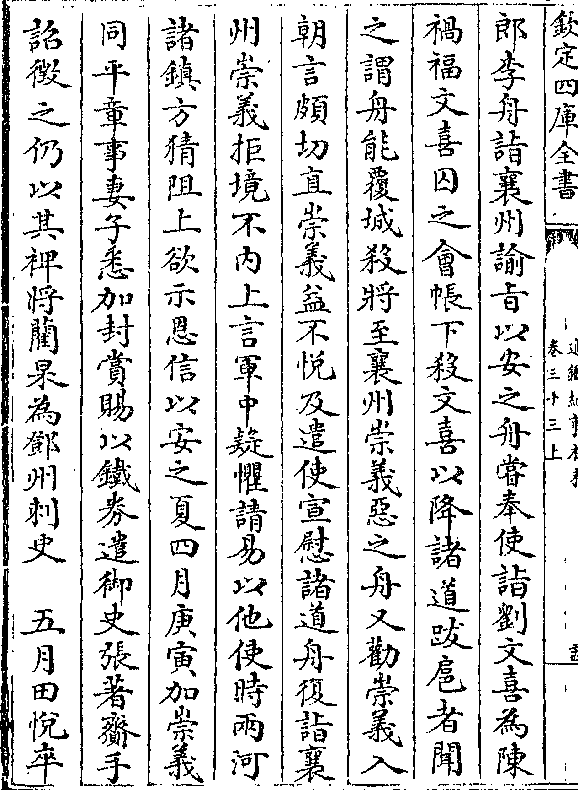 欽定四庫全書
卷三十三上
郎李舟詣襄州諭旨以安之舟嘗奉使詣劉文喜為陳
禍福文喜囚之會帳下殺文喜以降諸道跋扈者聞
之謂舟能覆城殺將至襄州崇義惡之舟又勸崇義入
朝言頗切直崇義益不悅及遣使宣慰諸道舟復詣襄
州崇義拒境不内上言軍中疑懼請易以他使時兩河
諸鎮方猜阻上欲示恩信以安之夏四月庚寅加崇義
同平章事妻子悉加封賞賜以鐵劵遣御史張著齎手
詔徵之仍以其裨將藺杲為鄧州刺史　五月田悅卒